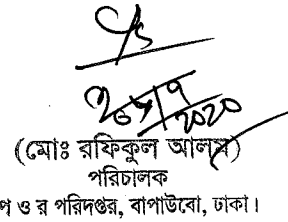 (মোঃ রফিকুল আলম)
পরিচালক
প ও র পরিদপ্তর, বাপাউবো, ঢাকা।